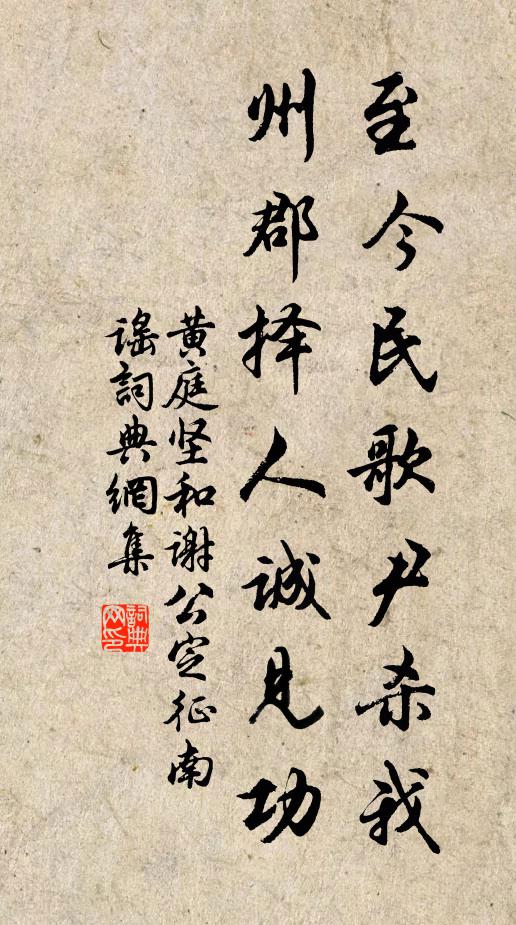 至今民歌尹杀我
州郡择人诚见功
黄庭坚和谢公定征南
谣詞典網集
詞典网印